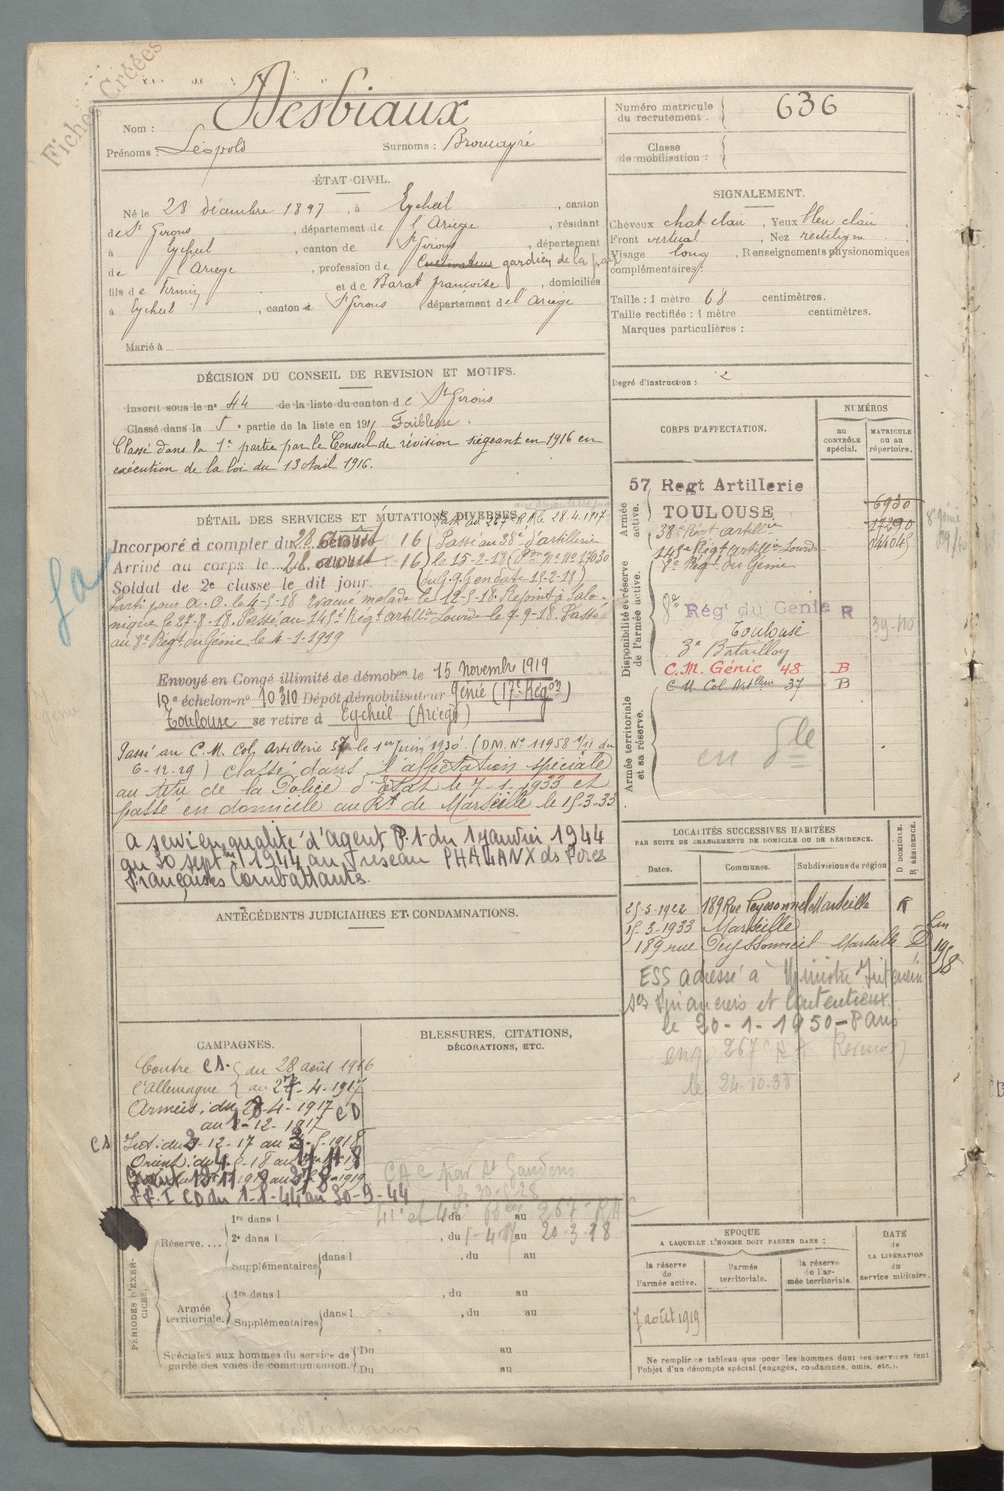 Fiches Créées
Nom : Desbiaux
Prénoms : Léopold Surnoms : Bromayré
Numéro matricule du recrutement. 636
Classe de mobilisation :
ÉTAT CIVIL.
Né le 28 décembre 1897, à Eycheil, canton
de St Girons, département de l'Ariège, résidant
à Eycheil, canton de St Girons, département
de l'Ariège, profession de Cultivateur gardien de la paix
fils de Firmin et de Barat françoise, domiciliés
à Eycheil, canton de St Girons département de l'Ariège
Marié à
SIGNALEMENT.
Cheveux chat clair, Yeux bleu clair
Front vertical, Nez rectiligne
Visage long, Renseignements physionomiques
complémentaires :
Taille : 1 mètre 68 centimètres.
Taille rectifiée : 1 mètre centimètres.
Marques particulières :
Degré d'instruction : 2
DÉCISION DU CONSEIL DE REVISION ET MOTIFS.
Inscrit sous le no 44 de la liste du canton de St Girons
Classé dans la 5e partie de la liste en 191 Faiblesse.
Classé dans la 1e partie par le Conseil de révision siégeant en 1916 en
exécution de la loi du 13 Avril 1916.
DÉTAIL DES SERVICES ET MUTATIONS DIVERSES.
Passé au 267e R A le 28.4.1917
Incorporé à compter du 28 août 16 Passé au 38e d'artillerie
Arrivé au corps le 28 août 16 le 15-2-18
Soldat de 2e classe le dit jour. du G.Q.G en date 15-2-18)
Parti pour A.O. le 4-5-18 Evacué malade le 12-5-18. Rejoint à Salo-
nique le 27-8-18. Passé au 145e Régt Artillerie Lourde le 7-9-18. Passé
au 8e Régt du Génie le 4-1-1919
Envoyé en Congé illimité de démobon le 15 Novembre 1919
10e échelon-no 10310 Dépôt démobilisateur Génie (17e Régon)
Toulouse se retire à Eycheil (Ariège)
Passé au C.M. Col Artillerie 37 le 1er Juin 1930 (DM. No 11958 1/11 du
6-12-29) Classé dans l'affectation spéciale
au titre de la Police d'Etat le 7-1-1933 et
passé en domicile au Rt de Marseille le 15-3-33
A servi en qualité d'agent P.1 du 1 janvier 1944
au 30 septbre 1944 au réseau PHALANX ds Forces
Françaises Combattantes.
CORPS D'AFFECTATION.
NUMÉROS
au CONTRÔLE spécial.
MATRICULE ou au répertoire.
Armée active.
57 Regt Artillerie
TOULOUSE
38e Régt artillie
145e Régt artill Lourde
8e Régt du Génie
6930
17290
14045
Disponibilité et réserve de l'armée active.
8e Régt du Génie R
Toulouse
3e Bataillon
C.M. Génie 48 B
C M Col Artillerie 37 B
Armée territoriale et sa réserve.
LOCALITÉS SUCCESSIVES HABITÉES
PAR SUITE DE CHANGEMENTS DE DOMICILE OU DE RÉSIDENCE.
Dates. Communes. Subdivisions de région
D DOMICILE. R RÉSIDENCE.
25-5-1922 189 Rue Peyssonnel Marseille R
15-3-1933 Marseille
189 rue Peyssonnel Marseille D
ESS adressé à
et Contentieux
le 20-1-1950 - Paris
24-10-33
ANTÉCÉDENTS JUDICIAIRES ET CONDAMNATIONS.
CAMPAGNES.
Contre CS. du 28 août 1916
l'Allemagne au 27-4-1917
Armées. du 28-4-1917 CD
au 1-12-1917
CS Int. du 2-12-17 au 3-5-1918
FFI CD du 1-1-44 au 30-9-44
BLESSURES, CITATIONS,
DÉCORATIONS, ETC.
CAC par St Gaudens
PÉRIODES D'EXERCICES.
Réserve....
1re dans l , du au
2e dans l , du au
Supplémentaires dans l , du au
Armée territoriale.
1re dans l , du au
Supplémentaires dans l , du au
Spéciales aux hommes du service de garde des voies de communication.
Du au
Du au
EPOQUE
A LAQUELLE L'HOMME DOIT PASSER DANS :
la réserve de l'armée active.
l'armée territoriale.
la réserve de l'armée territoriale.
DATE de LA LIBÉRATION du service militaire.
7 août 1919
Ne remplir ce tableau que pour les hommes dont les services font
l'objet d'un décompte spécial (engagés, condamnés, omis, etc.).